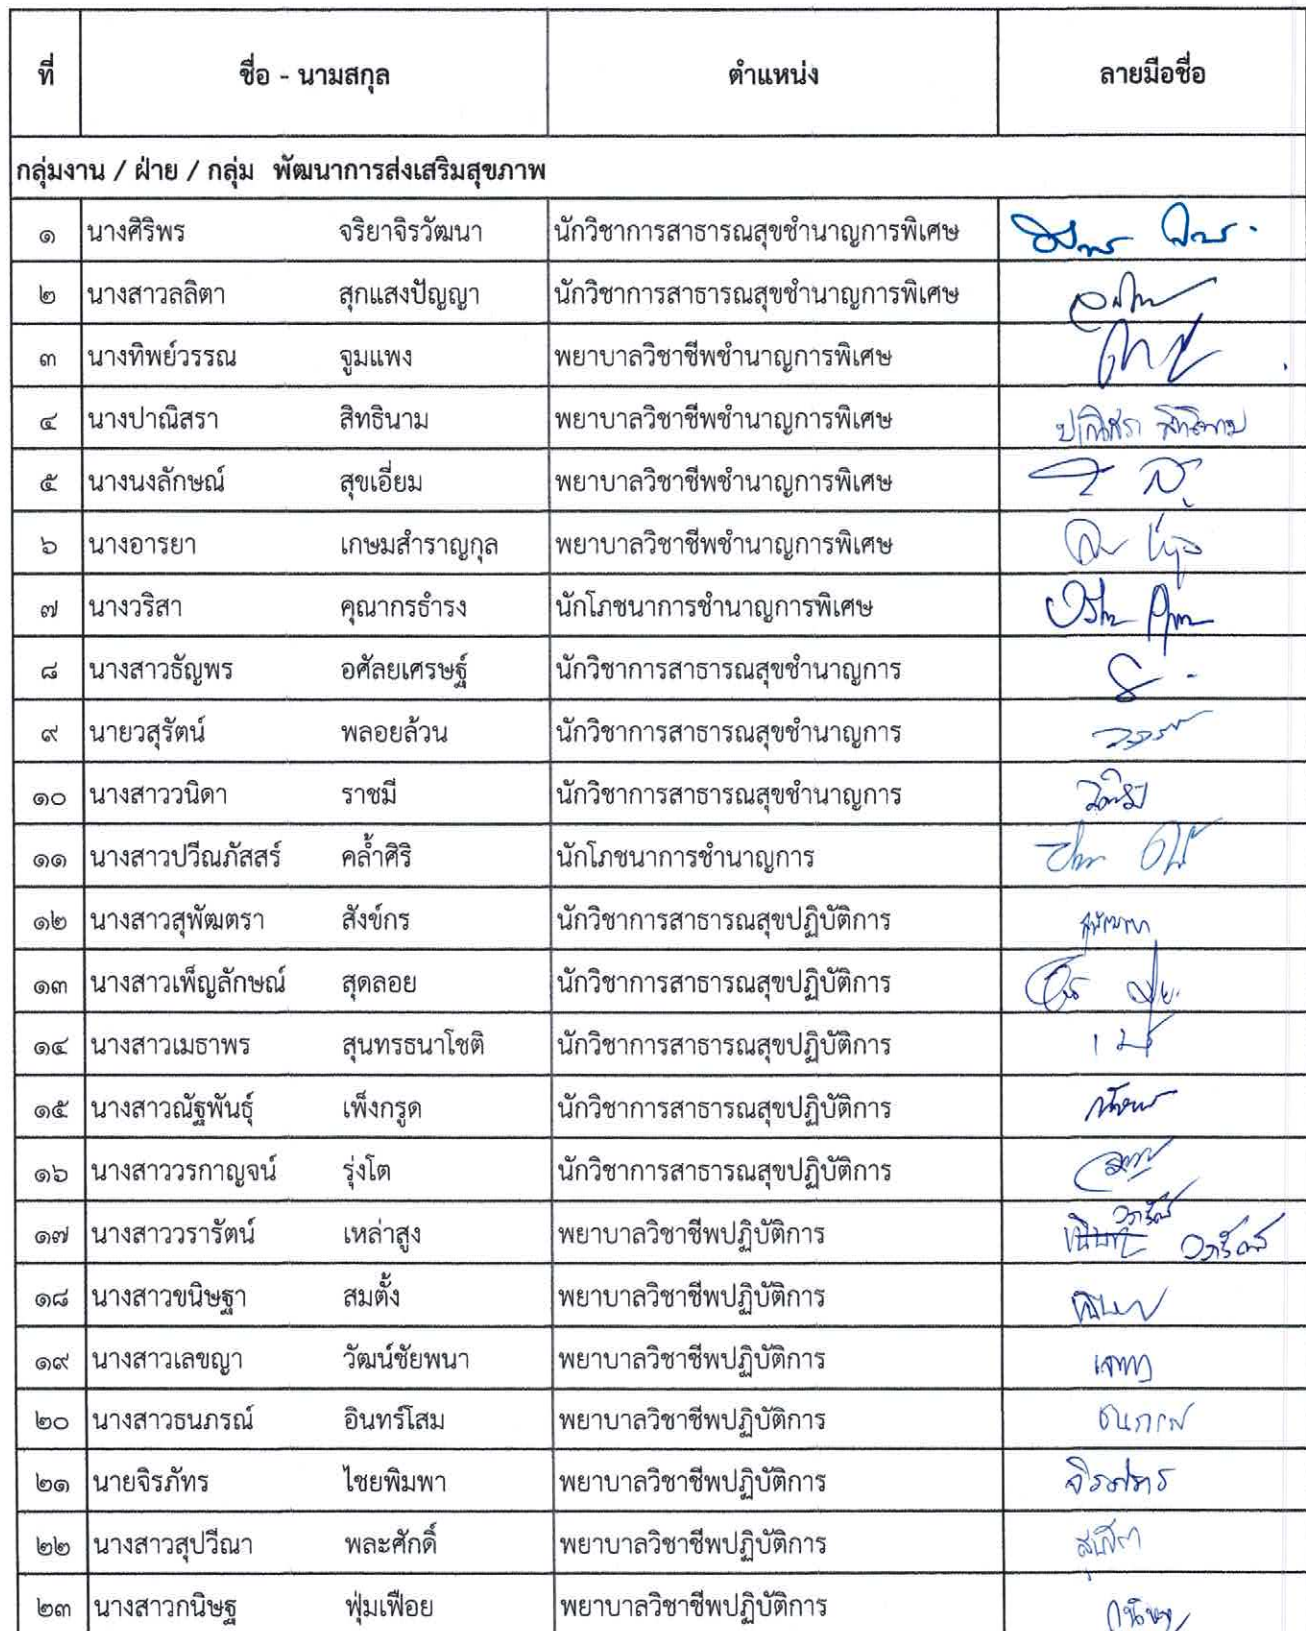 ที่ ชื่อ - นามสกุล ตำแหน่ง ลายมือชื่อ
กลุ่มงาน / ฝ่าย / กลุ่ม พัฒนาการส่งเสริมสุขภาพ
๑ นางศิริพร จริยาจิรวัฒนา นักวิชาการสาธารณสุขชำนาญการพิเศษ
๒ นางสาวลลิตา สุกแสงปัญญา นักวิชาการสาธารณสุขชำนาญการพิเศษ
๓ นางทิพย์วรรณ จูมแพง พยาบาลวิชาชีพชำนาญการพิเศษ
๔ นางปาณิสรา สิทธินาม พยาบาลวิชาชีพชำนาญการพิเศษ ปาณิสรา สิทธินาม
๕ นางนงลักษณ์ สุขเอี่ยม พยาบาลวิชาชีพชำนาญการพิเศษ
๖ นางอารยา เกษมสำราญกุล พยาบาลวิชาชีพชำนาญการพิเศษ
๗ นางวริสา คุณากรธำรง นักโภชนาการชำนาญการพิเศษ
๘ นางสาวธัญพร อศัลยเศรษฐ์ นักวิชาการสาธารณสุขชำนาญการ
๙ นายวสุรัตน์ พลอยล้วน นักวิชาการสาธารณสุขชำนาญการ
๑๐ นางสาววนิดา ราชมี นักวิชาการสาธารณสุขชำนาญการ
๑๑ นางสาวปวีณภัสสร์ คล้ำศิริ นักโภชนาการชำนาญการ
๑๒ นางสาวสุพัฒตรา สังข์กร นักวิชาการสาธารณสุขปฏิบัติการ
๑๓ นางสาวเพ็ญลักษณ์ สุดลอย นักวิชาการสาธารณสุขปฏิบัติการ
๑๔ นางสาวเมธาพร สุนทรธนาโชติ นักวิชาการสาธารณสุขปฏิบัติการ
๑๕ นางสาวณัฐพันธุ์ เพ็งกรูด นักวิชาการสาธารณสุขปฏิบัติการ
๑๖ นางสาววรกาญจน์ รุ่งโต นักวิชาการสาธารณสุขปฏิบัติการ
๑๗ นางสาววรารัตน์ เหล่าสูง พยาบาลวิชาชีพปฏิบัติการ
๑๘ นางสาวขนิษฐา สมตั้ง พยาบาลวิชาชีพปฏิบัติการ
๑๙ นางสาวเลขญา วัฒน์ชัยพนา พยาบาลวิชาชีพปฏิบัติการ
๒๐ นางสาวธนภรณ์ อินทร์โสม พยาบาลวิชาชีพปฏิบัติการ ธนภรณ์
๒๑ นายจิรภัทร ไชยพิมพา พยาบาลวิชาชีพปฏิบัติการ จิรภัทร
๒๒ นางสาวสุปวีณา พละศักดิ์ พยาบาลวิชาชีพปฏิบัติการ
๒๓ นางสาวกนิษฐ ฟุ่มเฟือย พยาบาลวิชาชีพปฏิบัติการ